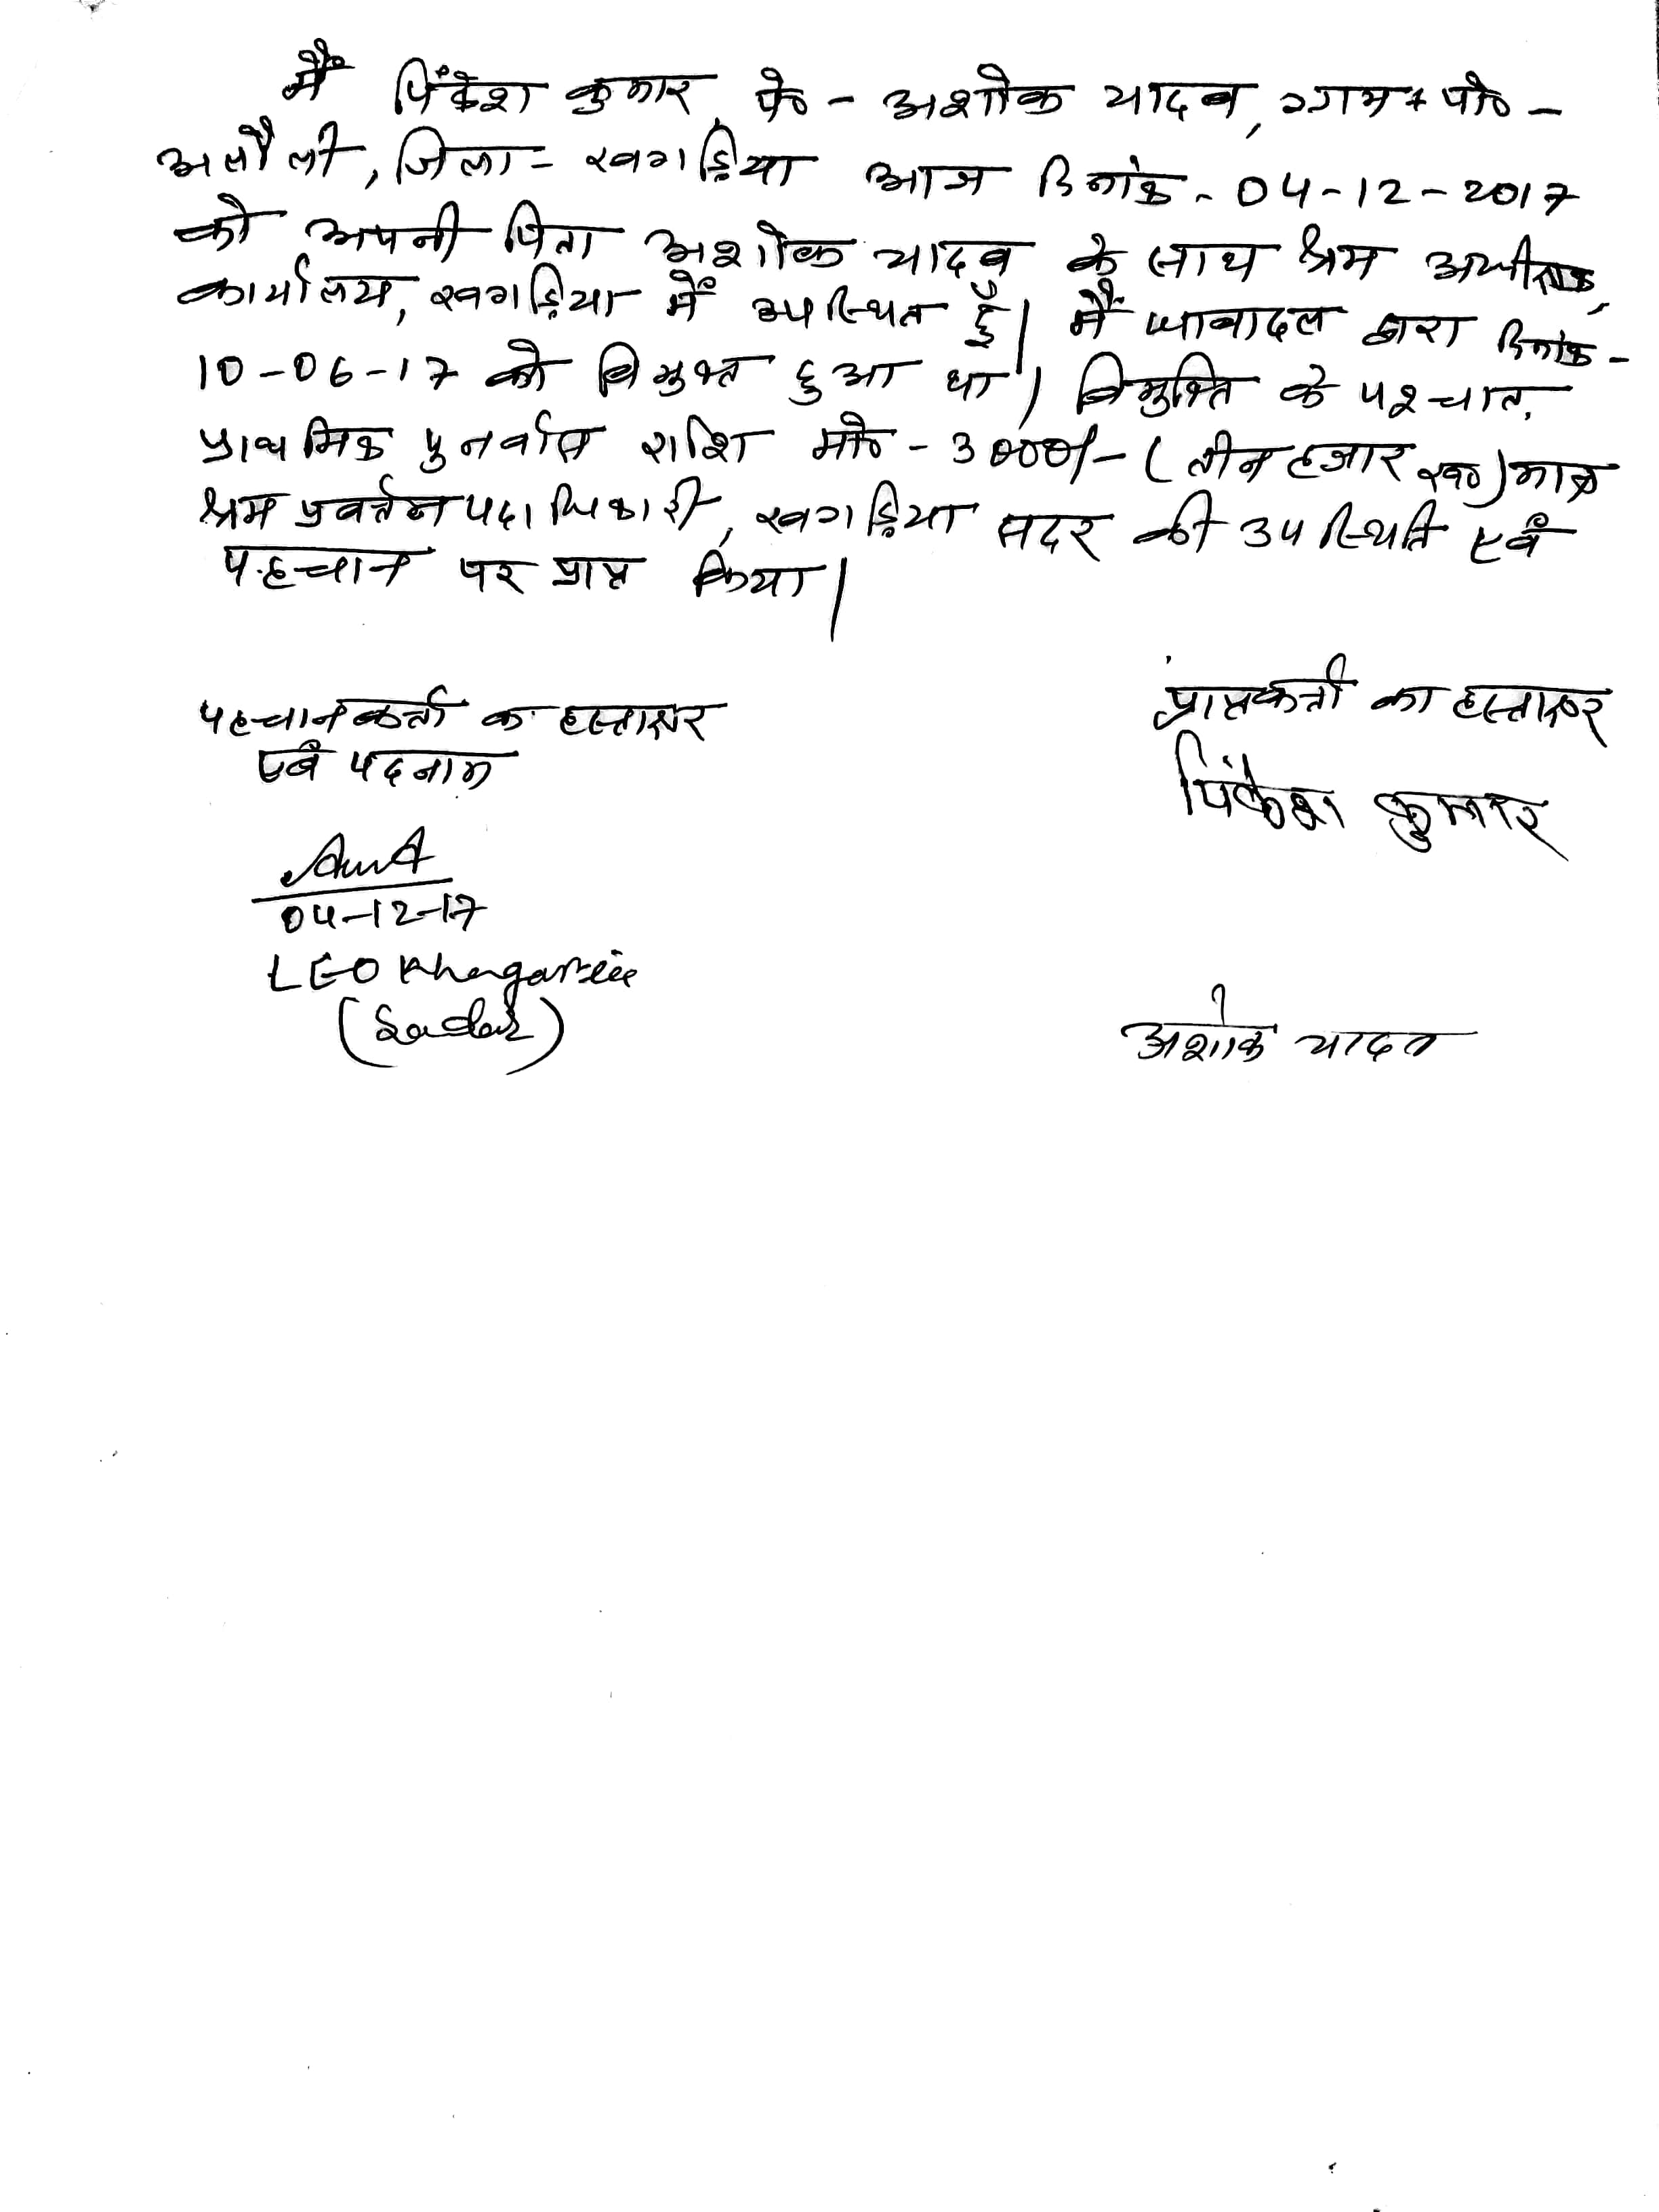 मैं पिंकेश कुमार, पे०- अशोक यादव, ग्राम+पो०-
अलौली, जिला- खगड़िया आज दिनांक- 04-12-2017
को अपनी पिता अशोक यादव के साथ श्रम अधीक्षक,
कार्यालय, खगड़िया में उपस्थित हूँ। मैं धावादल द्वारा दिनांक-
10-06-17 को विमुक्त हुआ था। विमुक्ति के पश्चात्
प्राथमिक पुनर्वास राशि मो०- 3000/- (तीन हजार रू०) मात्र
श्रम प्रवर्त्तन पदाधिकारी, खगड़िया सदर की उपस्थिति एवं
पहचान पर प्राप्त किया।
पहचानकर्ता क हस्ताक्षर
एवं पदनाम
प्राप्तकर्ता का हस्ताक्षर
पिंकेश कुमार
04-12-17
LEO Khagaria
(Sadar)
अशोक यादव